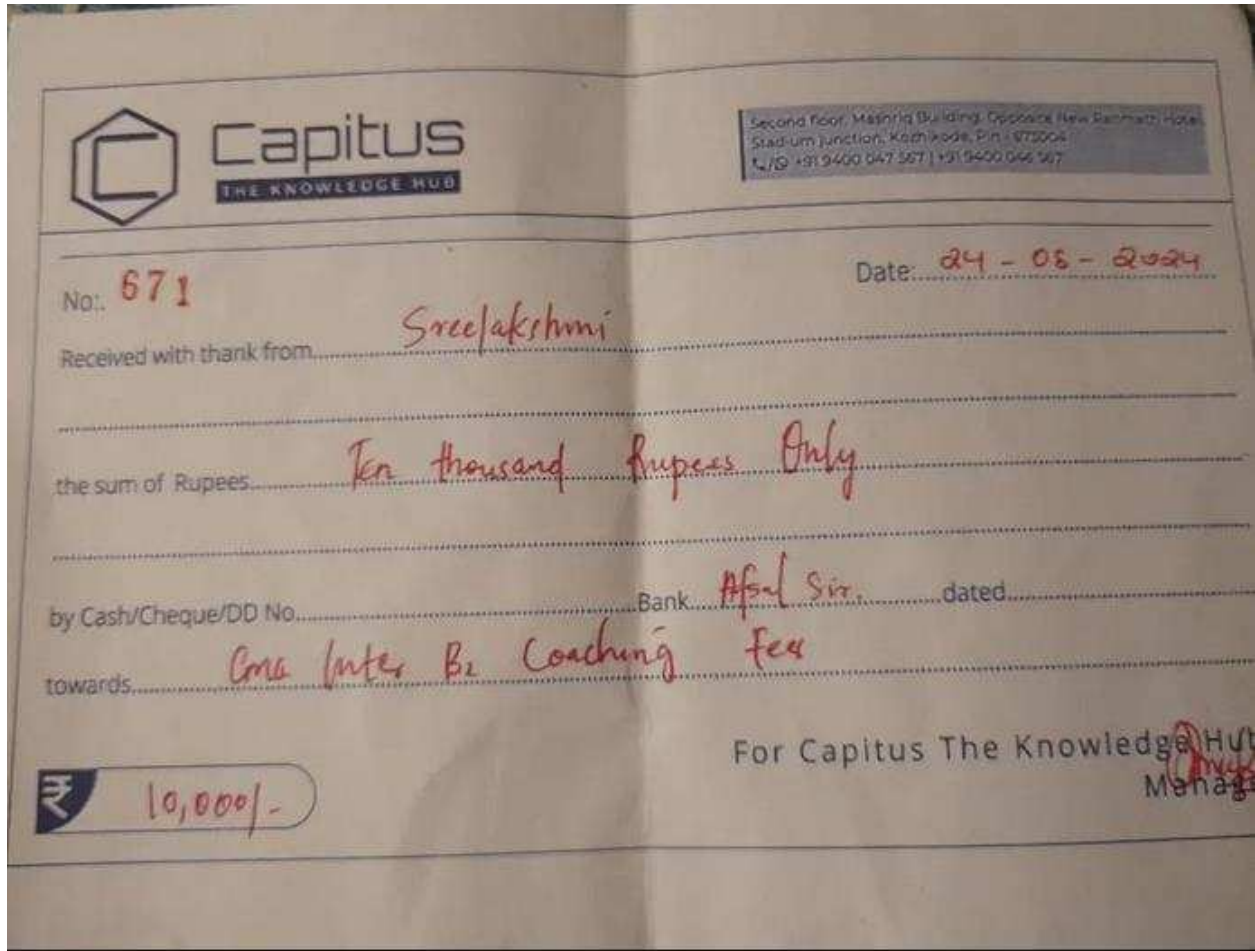 Capitus
THE KNOWLEDGE HUB
Second floor, Mashriq Building, Opposite New Rahmath Hotel
Stadium Junction, Kozhikode, Pin - 673004
+91 9400 047 567 | +91 9400 046 567
No:. 671
Date: 24 - 05 - 2024
Received with thank from Sreelakshmi
the sum of Rupees Ten thousand Rupees Only
by Cash/Cheque/DD No. Bank Afsal Sir. dated
towards Cma Inter B2 Coaching fees
For Capitus The Knowledge Hub
Manage
₹ 10,000/-